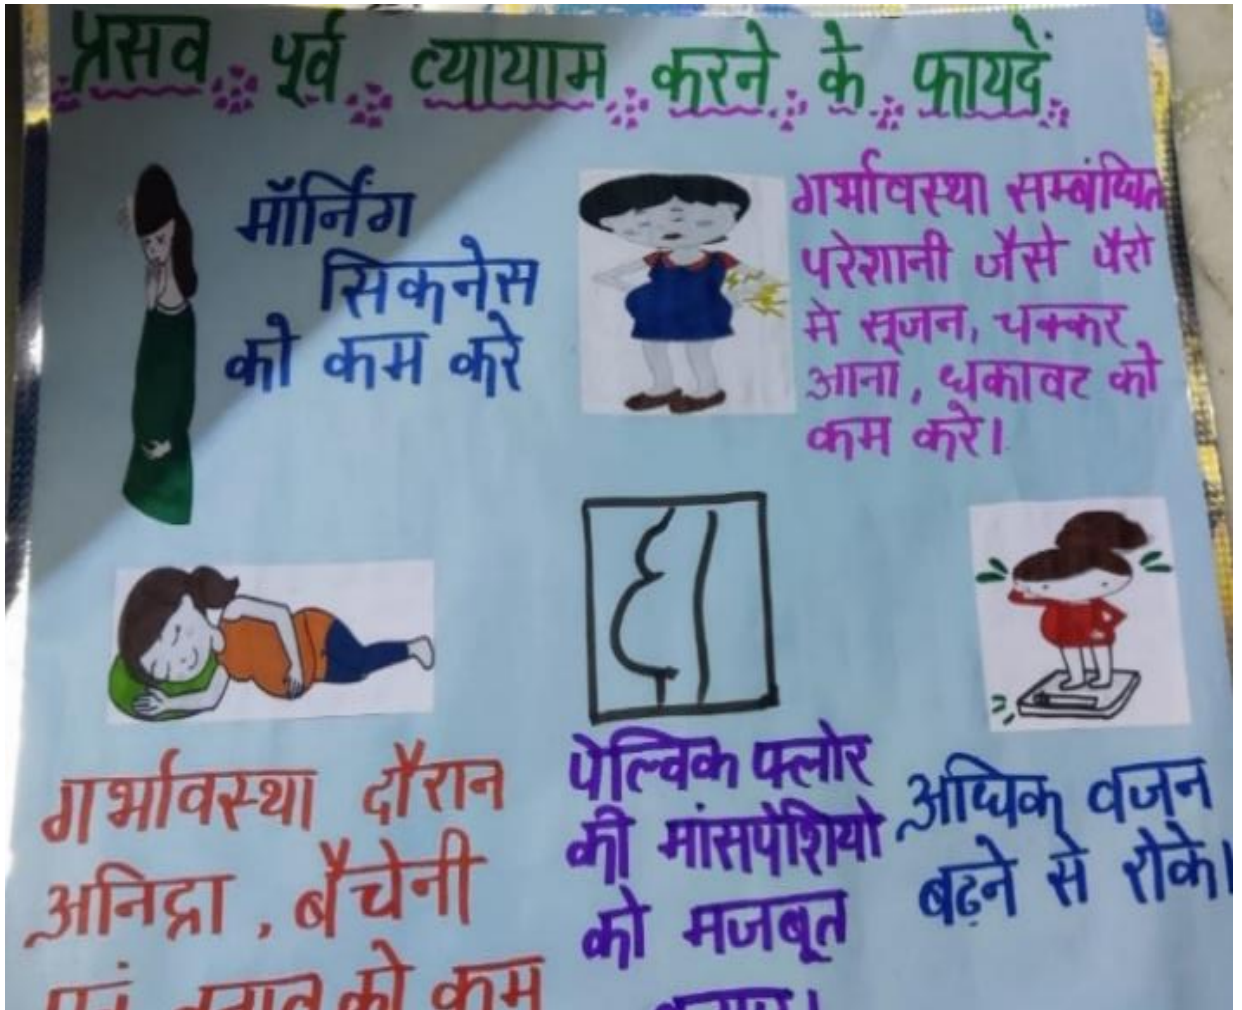 प्रसव पूर्व व्यायाम करने के फायदें
मॉर्निंग
सिकनेस
को कम करे
गर्भावस्था सम्बंधित
परेशानी जैसे पैरो
मे सूजन, चक्कर
आना, थकावट को
कम करे।
गर्भावस्था दौरान
अनिद्रा, बैचेनी
एवं तनाव को कम
पेल्विक फ्लोर
की मांसपेशियो
को मजबूत
अधिक वजन
बढ़ने से रोके।